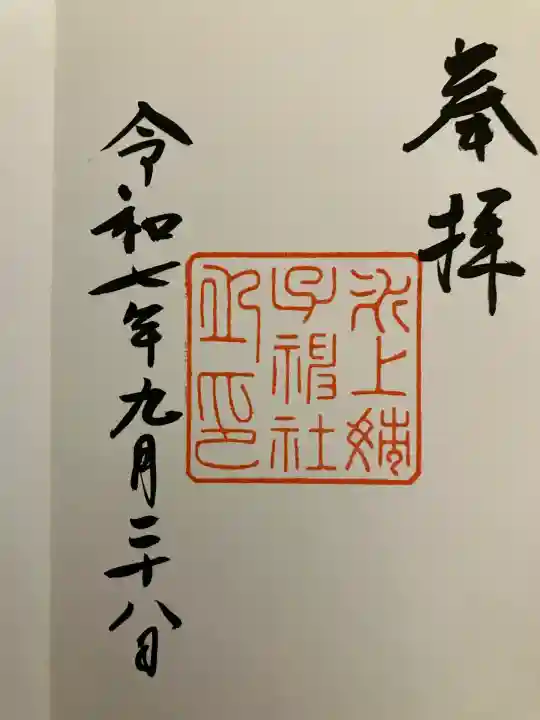 奉拝
氷上姉
子神社
之印
令和七年九月二十八日